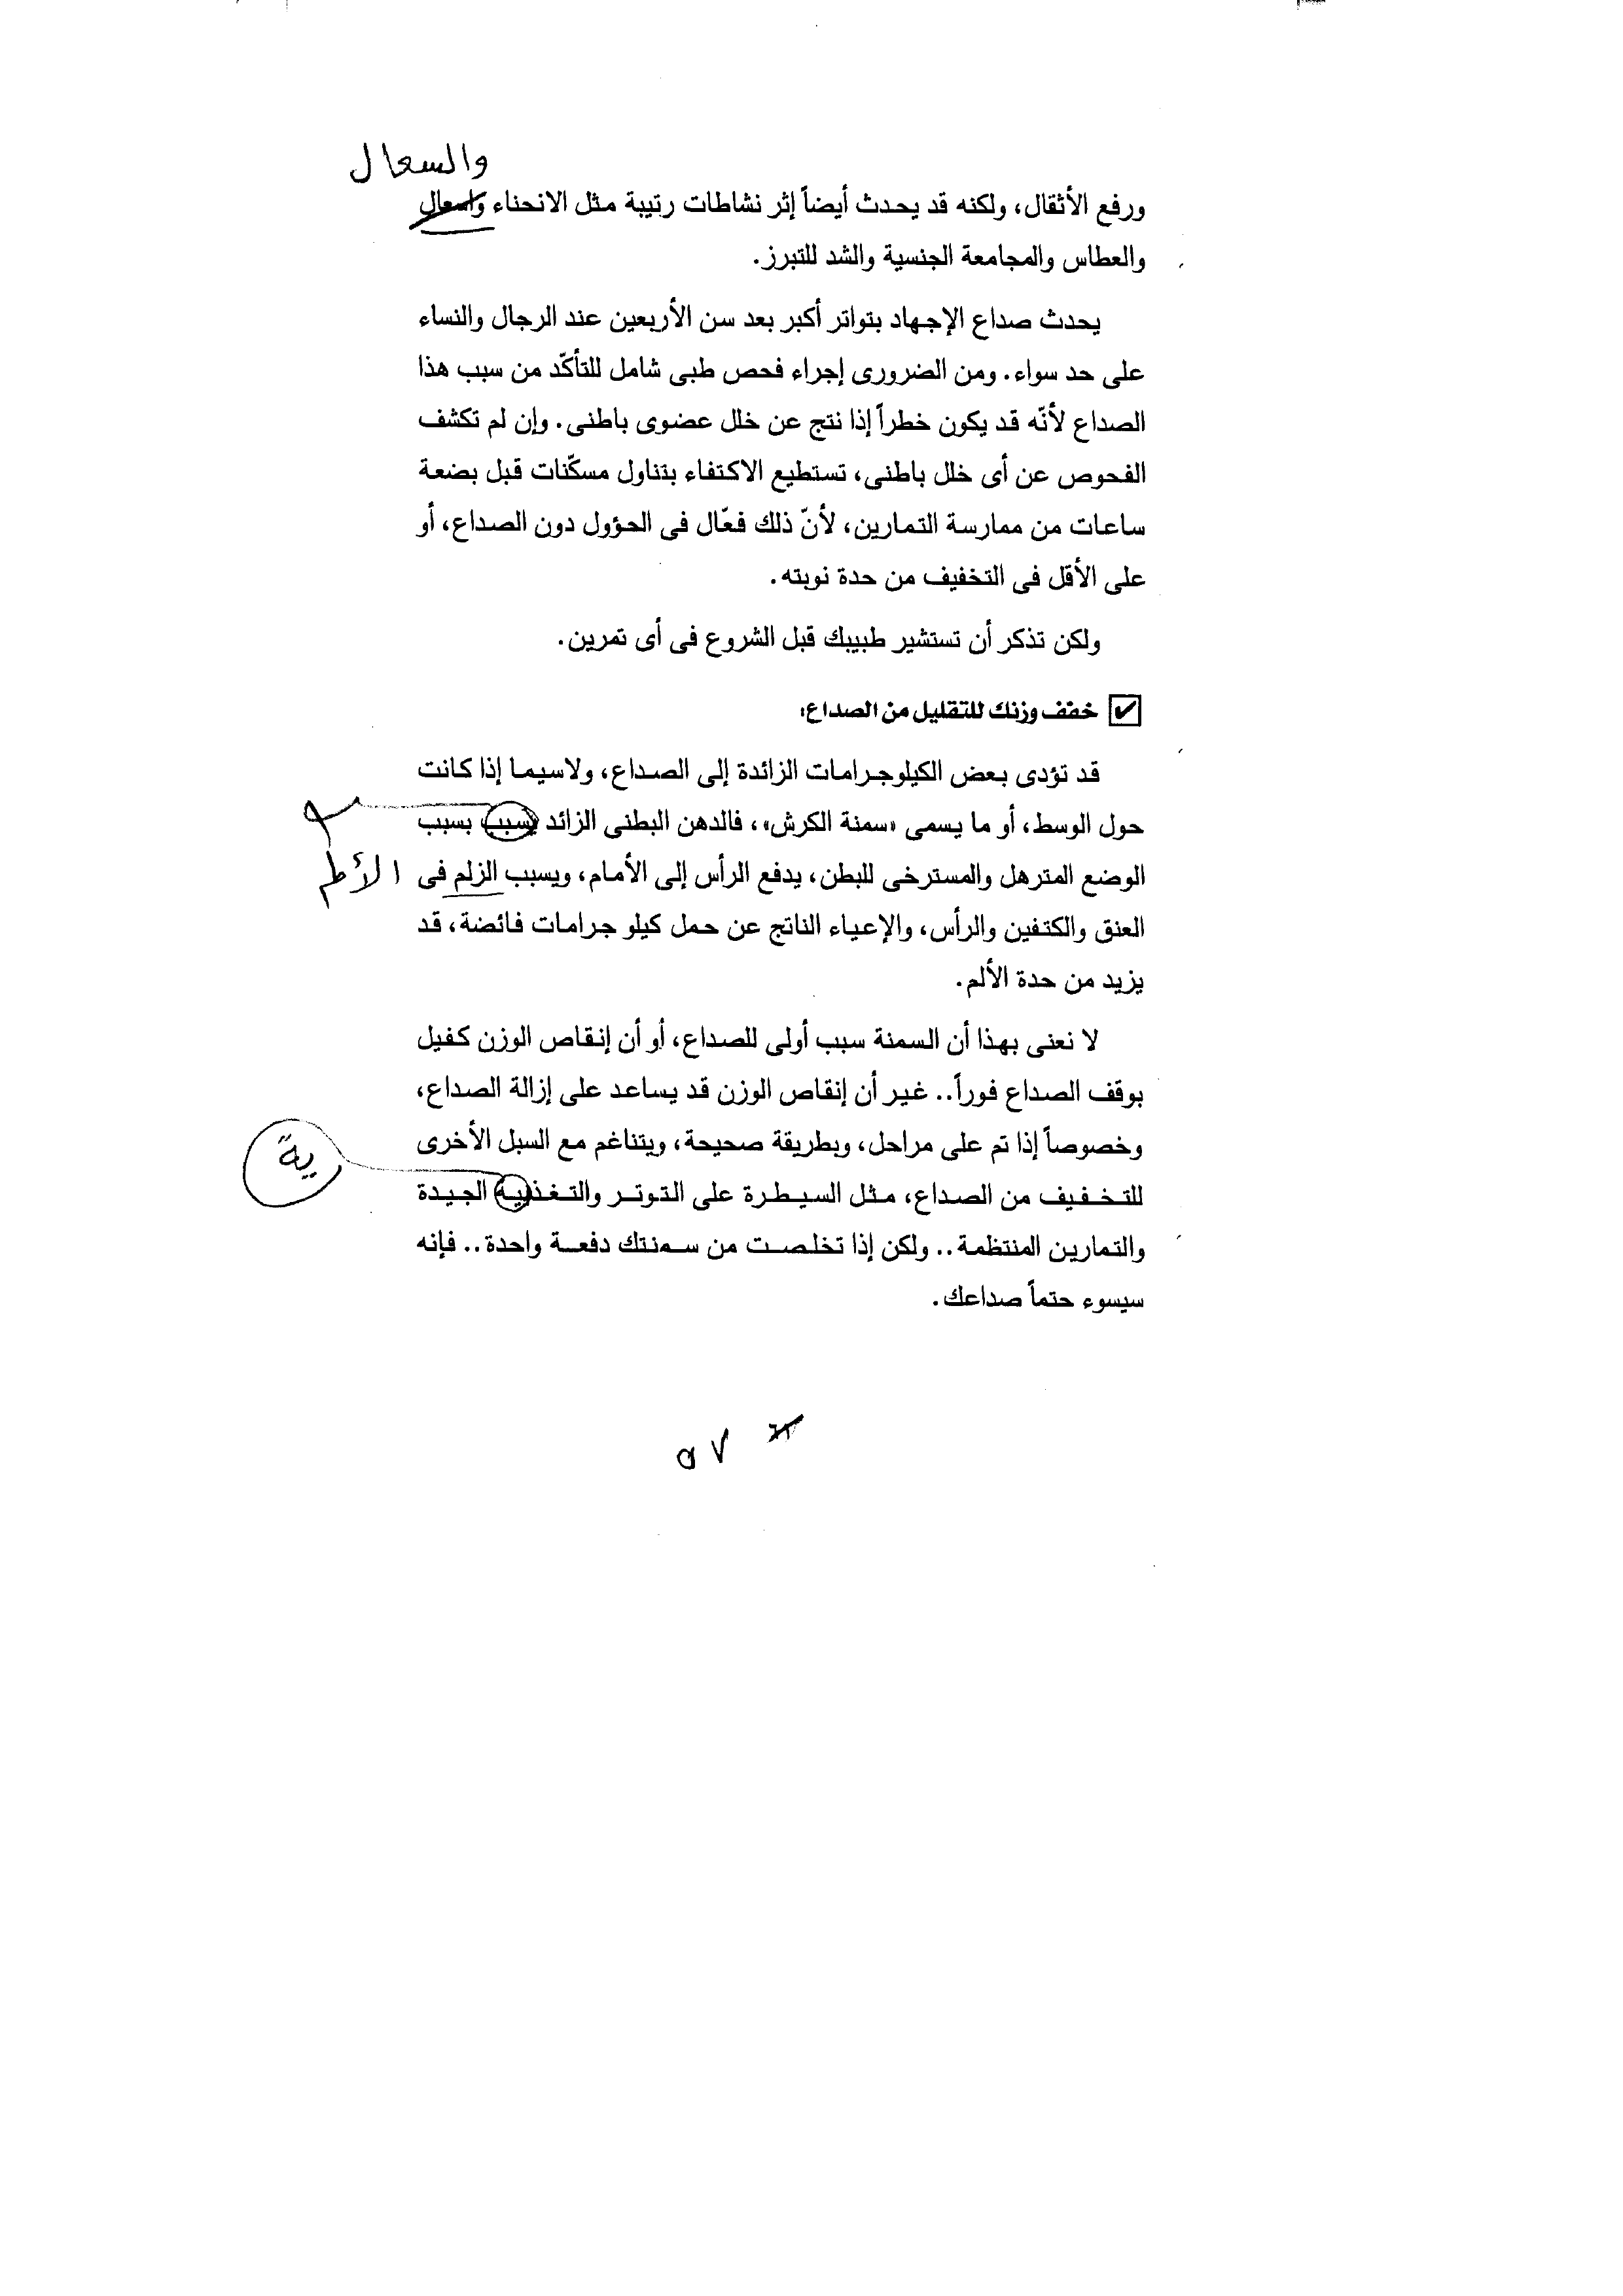 والسعال
ورفع الأثقال، ولكنه قد يحدث أيضاً إثر نشاطات رتيبة مثل الانحناء واسعال
والعطاس والمجامعة الجنسية والشد للتبرز.
يحدث صداع الإجهاد بتواتر أكبر بعد سن الأربعين عند الرجال والنساء
على حد سواء. ومن الضرورى إجراء فحص طبى شامل للتأكّد من سبب هذا
الصداع لأنّه قد يكون خطراً إذا نتج عن خلل عضوى باطنى. وإن لم تكشف
الفحوص عن أى خلل باطنى، تستطيع الاكتفاء بتناول مسكّنات قبل بضعة
ساعات من ممارسة التمارين، لأنّ ذلك فعّال فى الحؤول دون الصداع، أو
على الأقل فى التخفيف من حدة نوبته.
ولكن تذكر أن تستشير طبيبك قبل الشروع فى أى تمرين.
☑ خفف وزنك للتقليل من الصداع:
قد تؤدى بعض الكيلوجرامات الزائدة إلى الصداع، ولاسيما إذا كانت
حول الوسط، أو ما يسمى «سمنة الكرش»، فالدهن البطنى الزائد يسبب بسبب
الوضع المترهل والمسترخى للبطن، يدفع الرأس إلى الأمام، ويسبب الزلم فى
العنق والكتفين والرأس، والإعياء الناتج عن حمل كيلو جرامات فائضة، قد
يزيد من حدة الألم.
لا نعنى بهذا أن السمنة سبب أولى للصداع، أو أن إنقاص الوزن كفيل
بوقف الصداع فوراً.. غير أن إنقاص الوزن قد يساعد على إزالة الصداع،
وخصوصاً إذا تم على مراحل، وبطريقة صحيحة، ويتناغم مع السبل الأخرى
ية
للتخفيف من الصداع، مثل السيطرة على التوتر والتغذية الجيدة
والتمارين المنتظمة.. ولكن إذا تخلصت من سمنتك دفعة واحدة.. فإنه
سيسوء حتماً صداعك.
٥٧